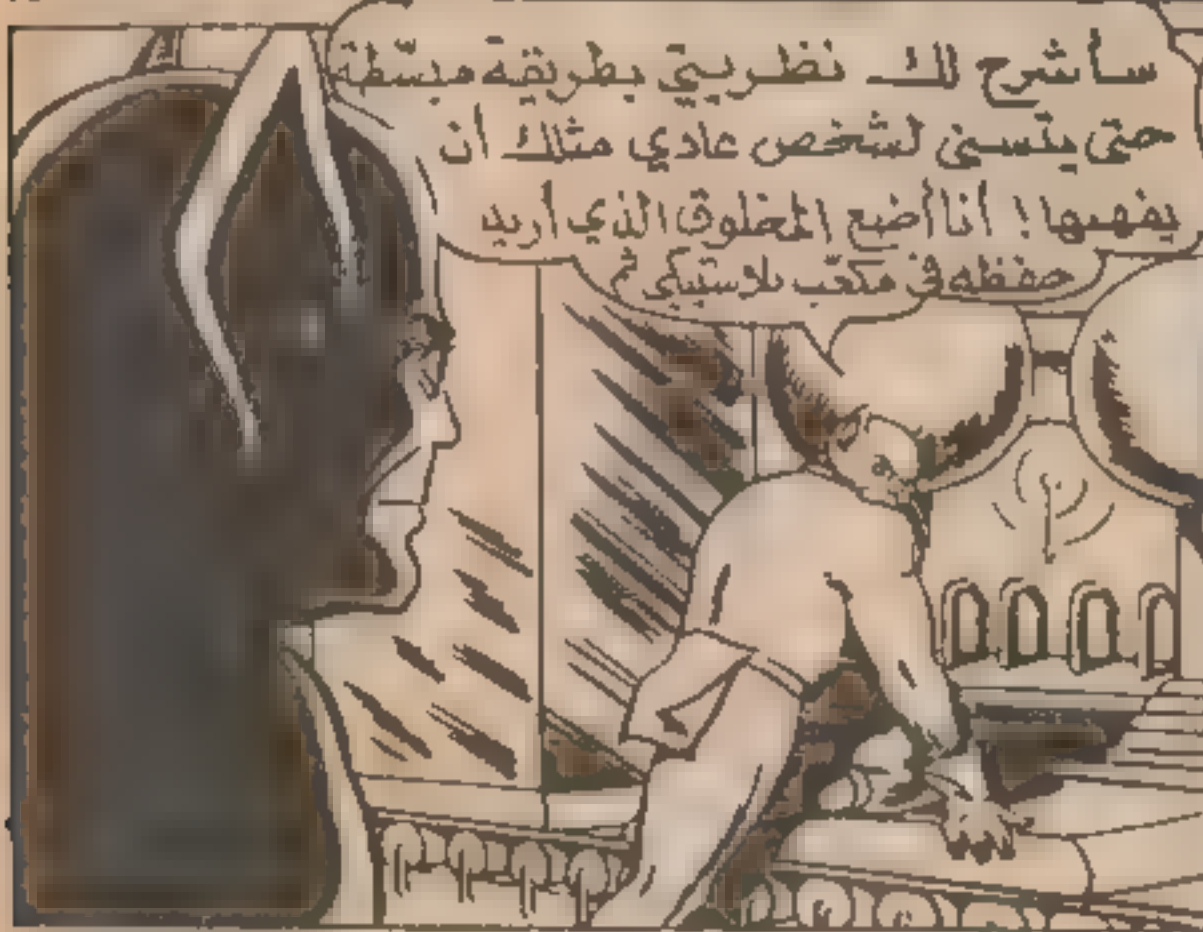 سأشرح لك نظريتي بطريقة مبسّطة
حتى يتسنى لشخص عادي مثلك أن
يفهمها! أنا أضع المخلوق الذي أريد
حفظه في مكعّب بلاستيكي ثم